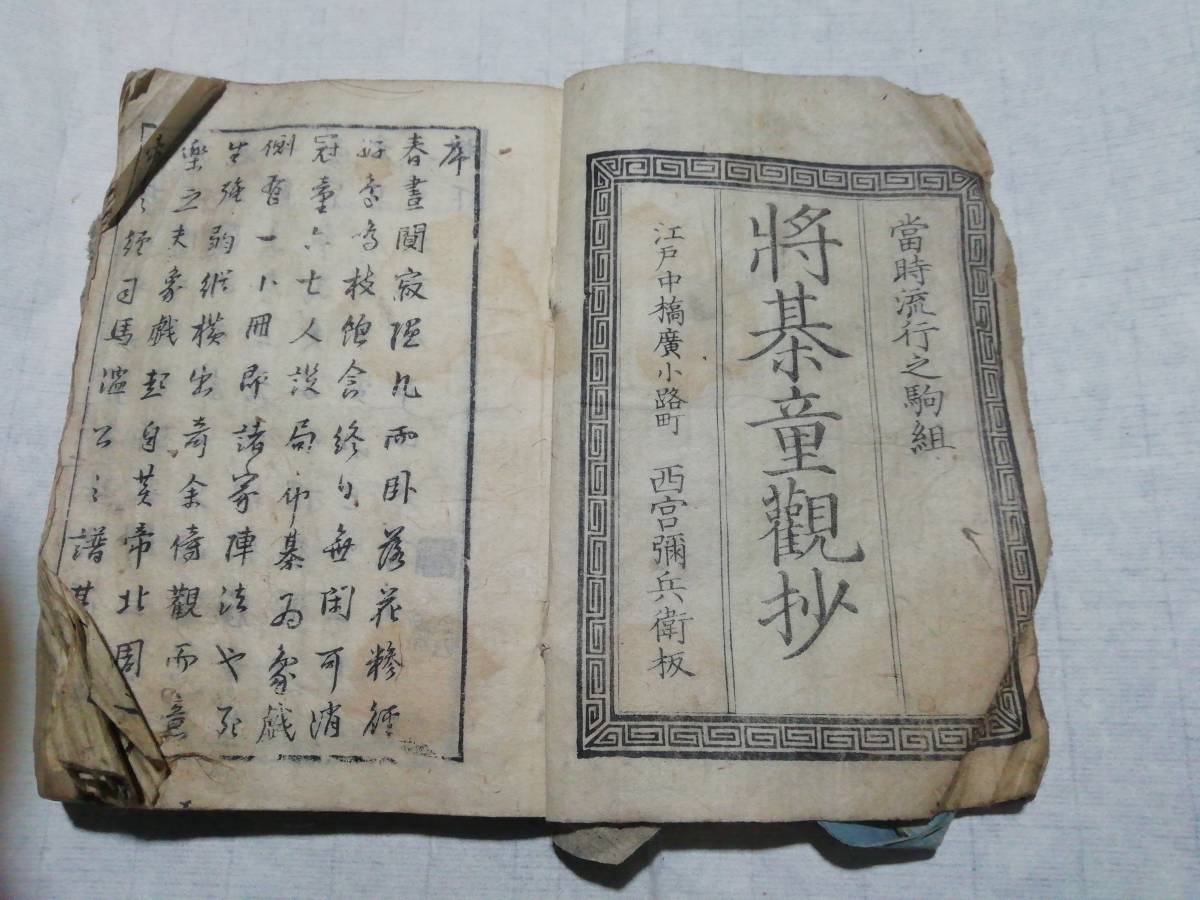 當時流行之駒組
將棊童觀抄
江戸中橋廣小路町 西宮彌兵衛板
序
春晝閴寂隠几而臥落花糝經
好鳥鳴枝飽食終日無閑可消
冠童六七人設局布棊為象戲
側有一小冊即諸家陣法也死
生強弱縦横出奇余傍觀而意
樂之夫象戲起自黄帝北周
司馬温公之譜其